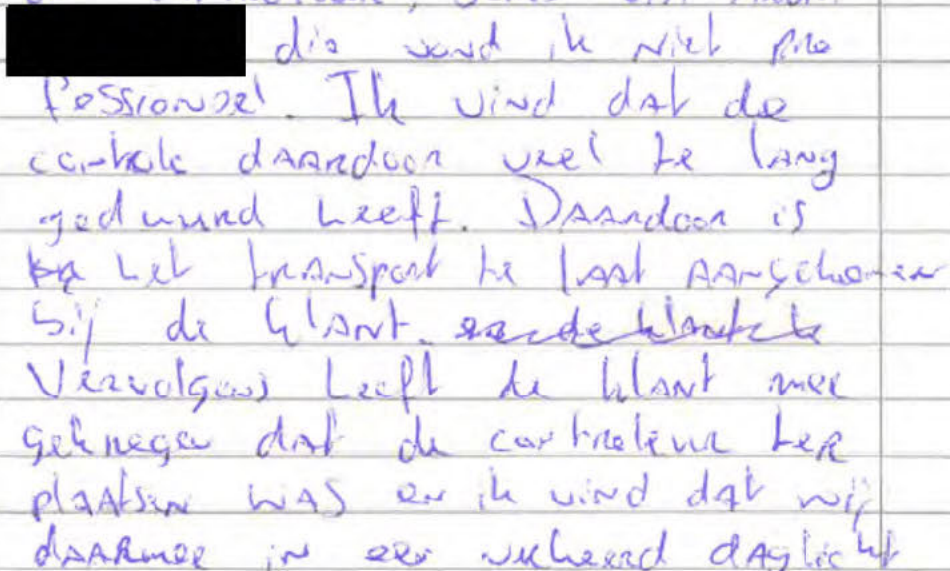 die vond ik niet pro
fessioneel. Ik vind dat de
controle daardoor veel te lang
geduurd heeft. Daardoor is
het transport te laat aangekomen
bij de klant.
Vervolgens heeft de klant mee
gekregen dat de controleur ter
plaatsen was en ik vind dat wij
daarmee in een verkeerd daglicht